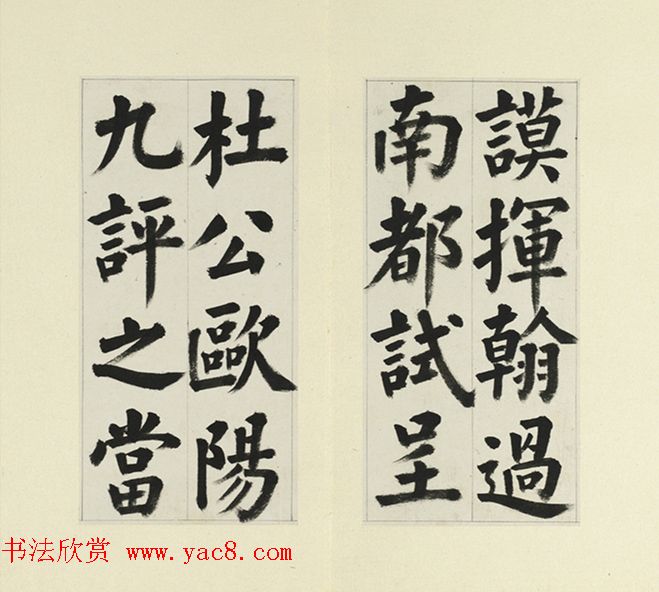 謨揮翰過
南都試呈
杜公歐陽
九評之當
书法欣赏 www.yac8.com